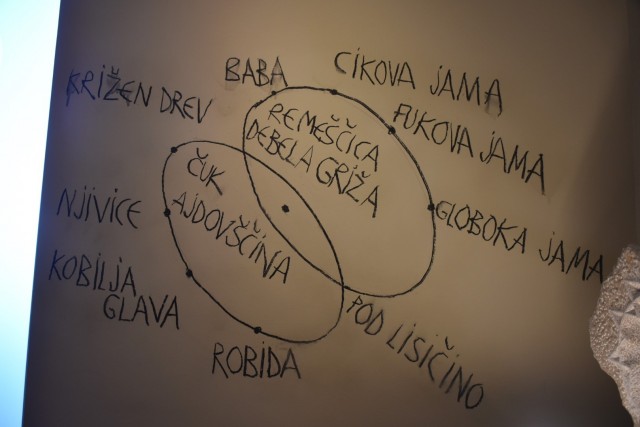 BABA
CIKOVA JAMA
KRIŽEN DREV
FUKOVA JAMA
REMEŠČICA
DEBELA GRIŽA
ČUK
AJDOVŠČINA
NJIVICE
GLOBOKA JAMA
KOBILJA
GLAVA
POD LISIČINO
ROBIDA